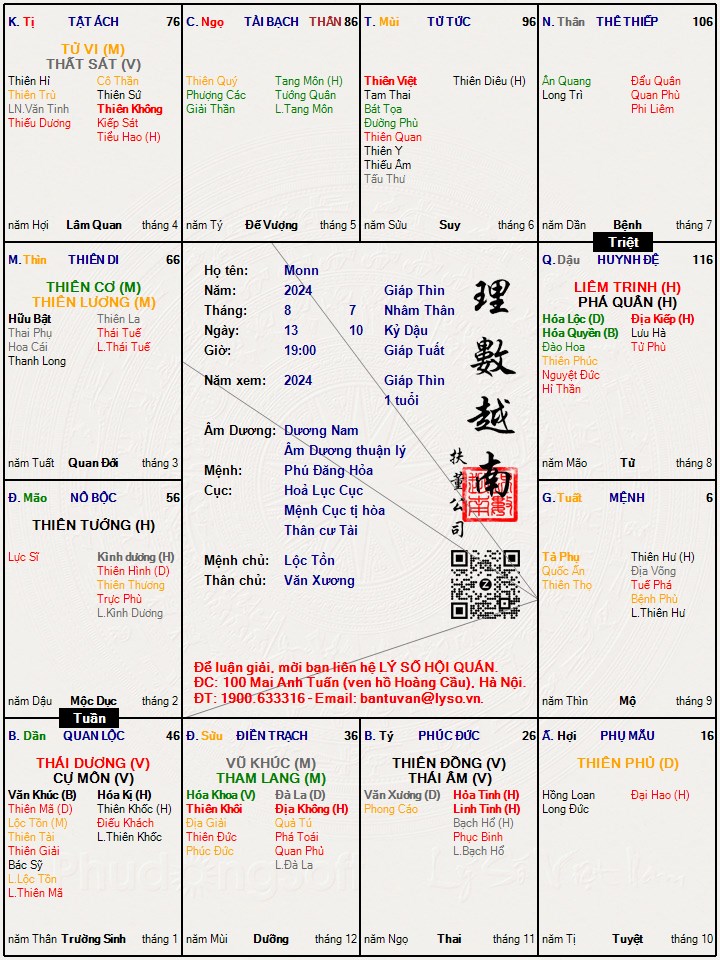 K. Tị TẬT ÁCH 76
TỬ VI (M)
THẤT SÁT (V)
Thiên Hỉ Cô Thần
Thiên Trù Thiên Sứ
LN.Văn Tinh Thiên Không
Thiếu Dương Kiếp Sát
Tiểu Hao (H)
năm Hợi Lâm Quan tháng 4
C. Ngọ TÀI BẠCH THÂN 86
Thiên Quý Tang Môn (H)
Phượng Các Tướng Quân
Giải Thần L.Tang Môn
năm Tý Đế Vượng tháng 5
T. Mùi TỬ TỨC 96
Thiên Việt Thiên Diêu (H)
Tam Thai
Bát Tọa
Đường Phù
Thiên Quan
Thiên Y
Thiếu Âm
Tấu Thư
năm Sửu Suy tháng 6
N. Thân THÊ THIẾP 106
Ân Quang Đẩu Quân
Long Trì Quan Phù
Phi Liêm
năm Dần Bệnh tháng 7
Triệt
M. Thìn THIÊN DI 66
THIÊN CƠ (M)
THIÊN LƯƠNG (M)
Hữu Bật Thiên La
Thai Phụ Thái Tuế
Hoa Cái L.Thái Tuế
Thanh Long
năm Tuất Quan Đới tháng 3
Họ tên: Monn
Năm: 2024 Giáp Thìn
Tháng: 8 7 Nhâm Thân
Ngày: 13 10 Kỷ Dậu
Giờ: 19:00 Giáp Tuất
Năm xem: 2024 Giáp Thìn
1 tuổi
Âm Dương: Dương Nam
Âm Dương thuận lý
Mệnh: Phú Đăng Hỏa
Cục: Hoả Lục Cục
Mệnh Cục tị hòa
Thân cư Tài
Mệnh chủ: Lộc Tồn
Thân chủ: Văn Xương
理數越南
扶董公司
Để luận giải, mời bạn liên hệ LÝ SỐ HỘI QUÁN.
ĐC: 100 Mai Anh Tuấn (ven hồ Hoàng Cầu), Hà Nội.
ĐT: 1900.633316 - Email: bantuvan@lyso.vn.
Q. Dậu HUYNH ĐỆ 116
LIÊM TRINH (H)
PHÁ QUÂN (H)
Hóa Lộc (D) Địa Kiếp (H)
Hóa Quyền (B) Lưu Hà
Đào Hoa Tử Phù
Thiên Phúc
Nguyệt Đức
Hỉ Thần
năm Mão Tử tháng 8
Đ. Mão NÔ BỘC 56
THIÊN TƯỚNG (H)
Lực Sĩ Kình dương (H)
Thiên Hình (D)
Thiên Thương
Trực Phù
L.Kình Dương
năm Dậu Mộc Dục tháng 2
G. Tuất MỆNH 6
Tả Phụ Thiên Hư (H)
Quốc Ấn Địa Võng
Thiên Thọ Tuế Phá
Bệnh Phù
L.Thiên Hư
năm Thìn Mộ tháng 9
Tuần
B. Dần QUAN LỘC 46
THÁI DƯƠNG (V)
CỰ MÔN (V)
Văn Khúc (B) Hóa Kị (H)
Thiên Mã (D) Thiên Khốc (H)
Lộc Tồn (M) Điếu Khách
Thiên Tài L.Thiên Khốc
Thiên Giải
Bác Sỹ
L.Lộc Tồn
L.Thiên Mã
năm Thân Trường Sinh tháng 1
Đ. Sửu ĐIỀN TRẠCH 36
VŨ KHÚC (M)
THAM LANG (M)
Hóa Khoa (V) Đà La (D)
Thiên Khôi Địa Không (H)
Địa Giải Quả Tú
Thiên Đức Phá Toái
Phúc Đức Quan Phủ
L.Đà La
năm Mùi Dưỡng tháng 12
B. Tý PHÚC ĐỨC 26
THIÊN ĐỒNG (V)
THÁI ÂM (V)
Văn Xương (D) Hỏa Tinh (H)
Phong Cáo Linh Tinh (H)
Bạch Hổ (H)
Phục Binh
L.Bạch Hổ
năm Ngọ Thai tháng 11
Ấ. Hợi PHỤ MẪU 16
THIÊN PHỦ (D)
Hồng Loan Đại Hao (H)
Long Đức
năm Tị Tuyệt tháng 10